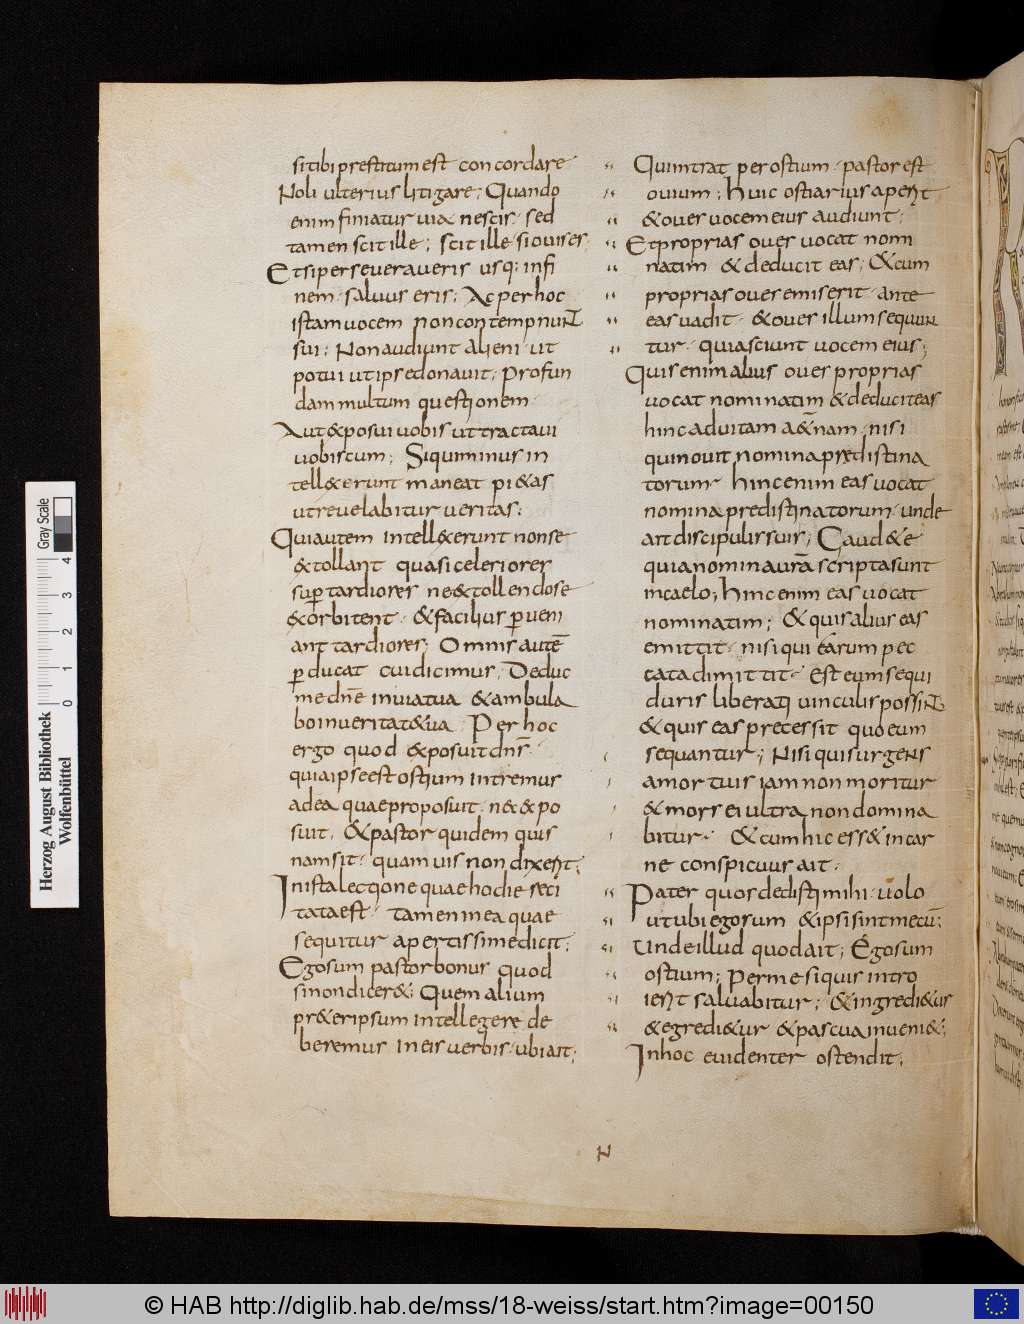 sitibi prestitum est concordare
Noli ulterius litigare; Quando
enim finiatur uia nescis· sed
tamen scit ille; scit ille si ouis es·
Et si perseueraueris usq: infi
nem· saluus eris; Ac per hoc
istam uocem non contempnunt
sui; Non audiunt alieni· ut
potui ut ipse donauit; Profun
dam multum questionem·
Aut & posui uobis ut tractaui
uobiscum; Si qui minus in
tell&erunt maneat pi&as
ut reuelabitur ueritas;
Qui autem intell&erunt non se
&tollant quasi celeriores
sup tardiores ne &tollendo se
&orbitent· & facilius p ueni
ant tardiores; Omnis autē
pducat cui dicimus; Deduc
me dn̄e in uia tua & ambula
bo in ueritate tua· Per hoc
ergo quod &posuit dn̄s·
quia ipse est ostium intremus
ad ea quae proposuit· n& &po
suit· & pastor quidem quis
nam sit· quamuis non dixerit;
In ista lectione quae hodie reci
tata est· tamen in ea quae
sequitur apertissime dicit;
Ego sum pastor bonus quod
si non dicer&; Quem alium
pr&er ipsum intellegere de
beremus in eis uerbis· ubi ait;
Qui intrat per ostium· pastor est
ouium; huic ostiarius aperit·
& oues uocem eius audiunt;
Et proprias oues uocat nomi
natim & deducit eas; & cum
proprias oues emiserit· ante
eas uadit· & oues illum sequun
tur· quia sciunt uocem eius;
Quis enim alius oues proprias
uocat nominatim & deducit eas
hinc ad uitam a&nam· nisi
qui nouit nomina predistina
torum· hinc enim eas uocat
nomina predistinatorum· unde
ait discipulis suis; Gaud&e
quia nomina urā scripta sunt
in caelo; hinc enim eas uocat
nominatim; & quis alius eas
emittit· nisi qui earum pec
cata dimittit· Est eum sequi
duris liberati uinculis possint
& quis eas precessit quo eum
sequantur; Nisi qui surgens
a mortuis iam non moritur
& mors ei ultra non domina
bitur· & cum hic ess& in car
ne conspicuus ait·
Pater quos dedisti mihi· uolo
ut ubi ego sum & ipsi sint mecū;
Unde illud quod ait; Ego sum
ostium; Per me si quis intro
ierit saluabitur; & ingredi&ur
& egredi&ur & pascua inueni&;
In hoc euidenter ostendit;
Gray Scale
4
3
2
1
0
Herzog August Bibliothek
Wolfenbüttel
© HAB http://diglib.hab.de/mss/18-weiss/start.htm?image=00150